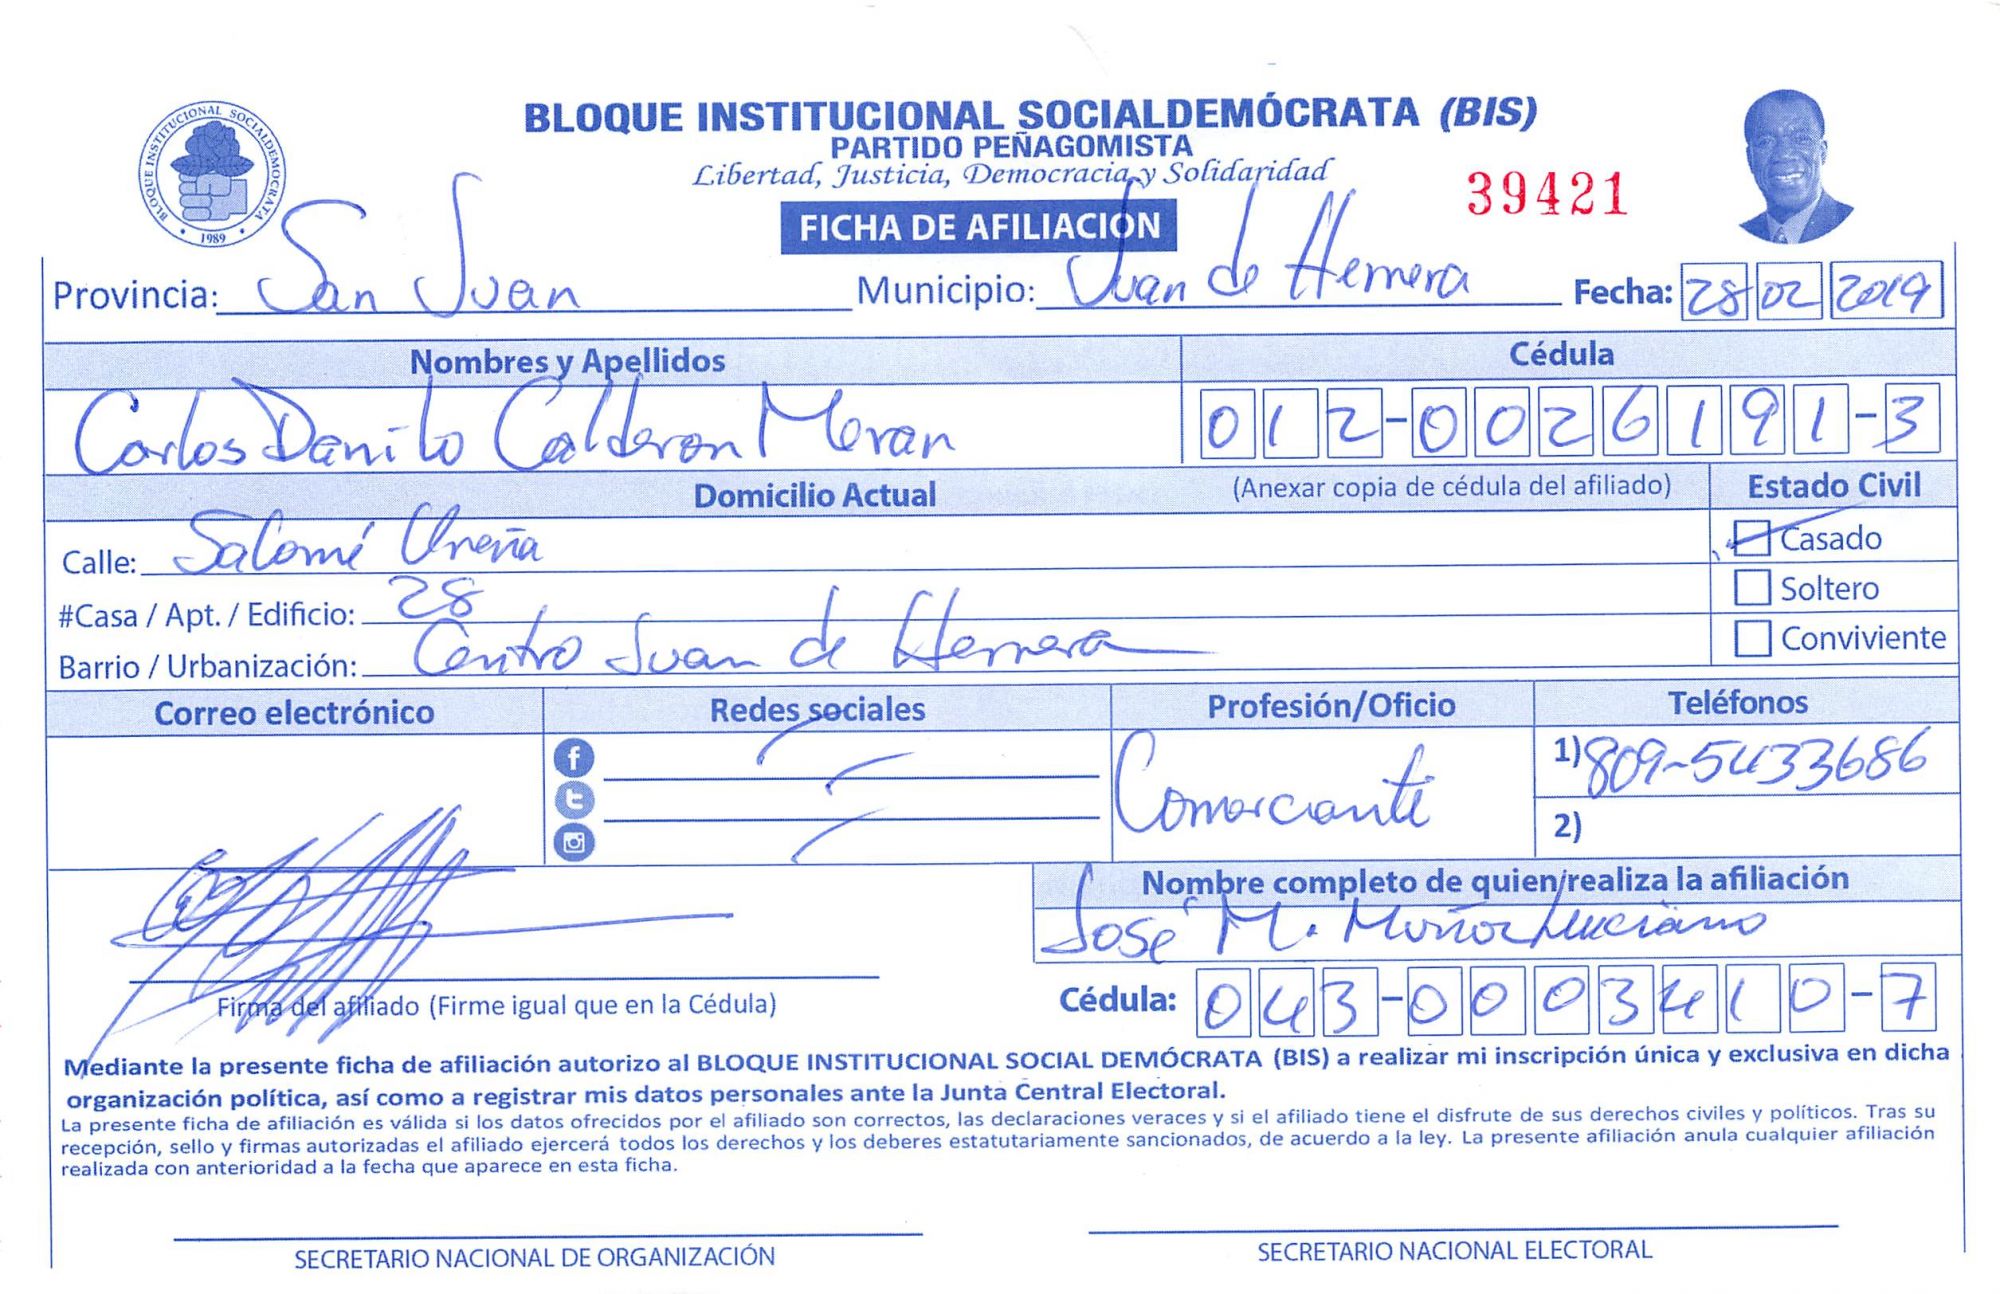 BLOQUE INSTITUCIONAL SOCIALDEMÓCRATA (BIS)
PARTIDO PEÑAGOMISTA
Libertad, Justicia, Democracia y Solidaridad
BLOQUE INSTITUCIONAL SOCIALDEMOCRATA
• 1989 •
39421
FICHA DE AFILIACIÓN
Provincia: San Juan Municipio: Juan de Herrera Fecha: 28 02 2019
Nombres y Apellidos Cédula
Carlos Danilo Calderon Meran 012-0026191-3
Domicilio Actual (Anexar copia de cédula del afiliado) Estado Civil
Calle: Salomé Ureña Casado
#Casa / Apt. / Edificio: 28 Soltero
Barrio / Urbanización: Centro Juan de Herrera Conviviente
Correo electrónico Redes sociales Profesión/Oficio Teléfonos
Comerciante 1) 809-5433686
2)
Nombre completo de quien realiza la afiliación
José M. Muñoz Luciano
Firma del afiliado (Firme igual que en la Cédula) Cédula: 043-0003410-7
Mediante la presente ficha de afiliación autorizo al BLOQUE INSTITUCIONAL SOCIAL DEMÓCRATA (BIS) a realizar mi inscripción única y exclusiva en dicha
organización política, así como a registrar mis datos personales ante la Junta Central Electoral.
La presente ficha de afiliación es válida si los datos ofrecidos por el afiliado son correctos, las declaraciones veraces y si el afiliado tiene el disfrute de sus derechos civiles y políticos. Tras su
recepción, sello y firmas autorizadas el afiliado ejercerá todos los derechos y los deberes estatutariamente sancionados, de acuerdo a la ley. La presente afiliación anula cualquier afiliación
realizada con anterioridad a la fecha que aparece en esta ficha.
SECRETARIO NACIONAL DE ORGANIZACIÓN SECRETARIO NACIONAL ELECTORAL